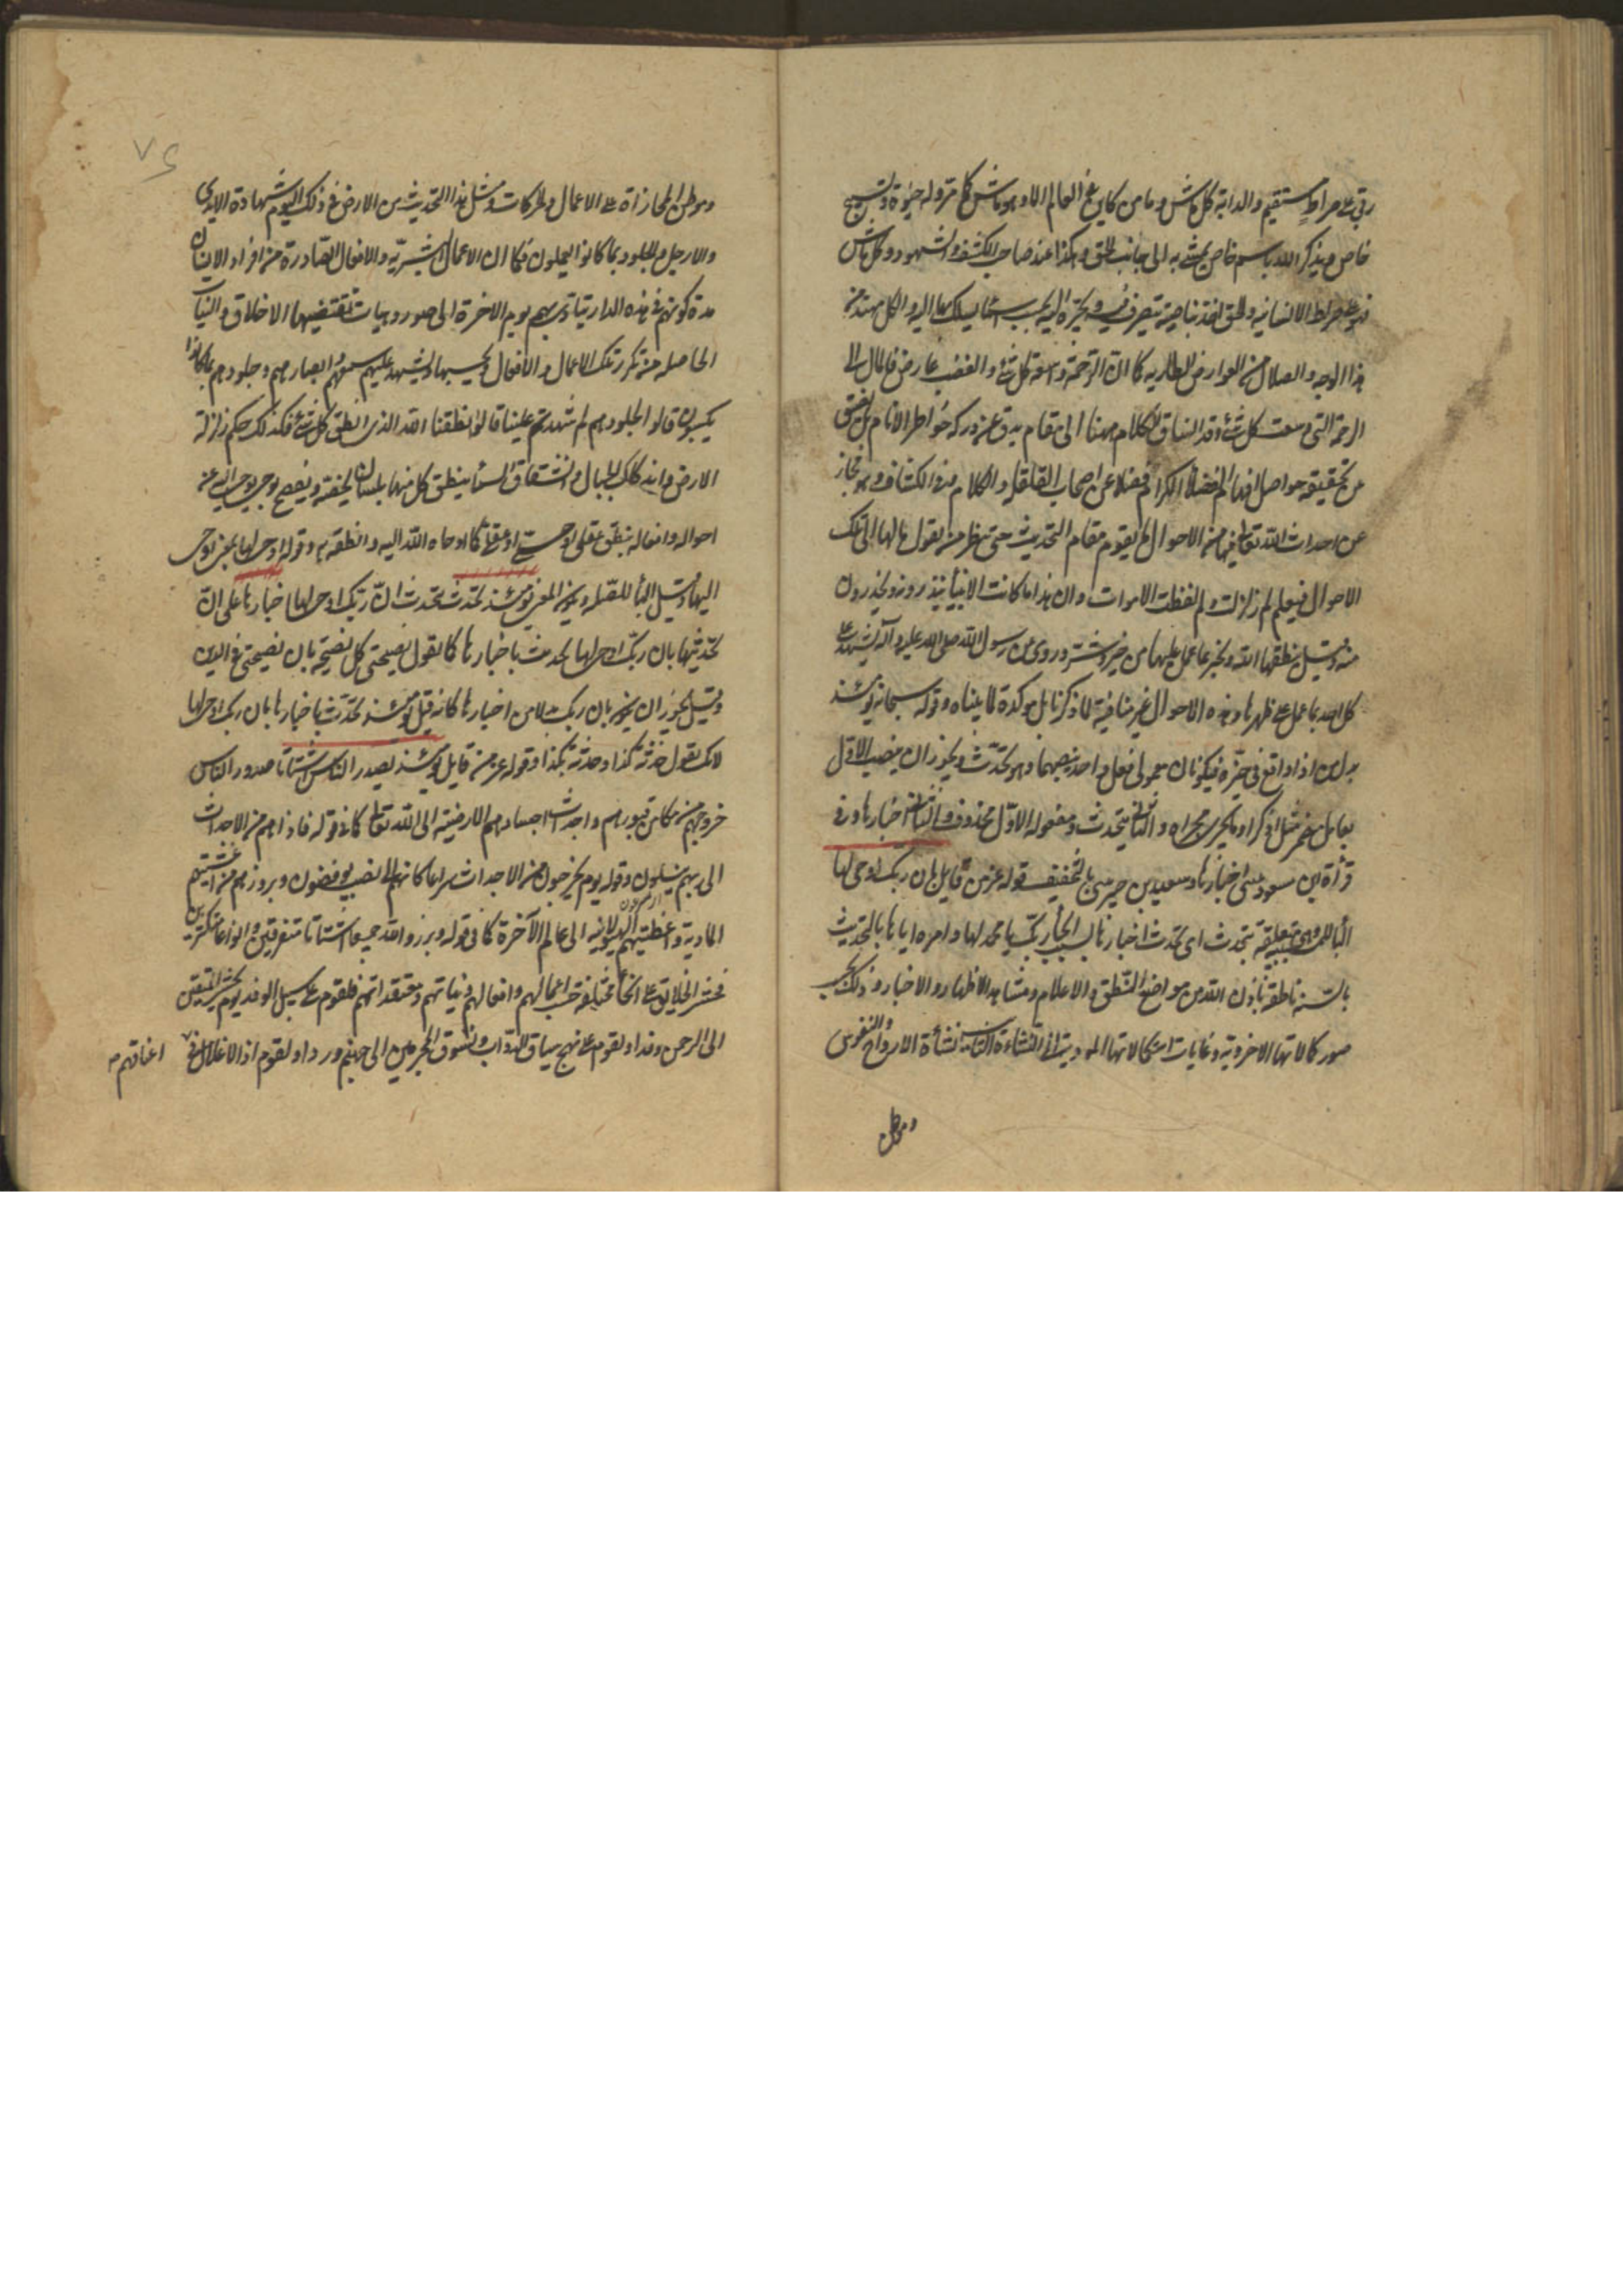 ربي على صراط مستقيم والدابة كل ماش وما من كاين في العالم الا وهو ماش كما مر وله حيوة وتسبيح
خاص ويذكر الله باسم خاص يمشي به الى جانب الحق وهكذا عند صاحب الكشف والشهود وكل ماش
فهو على صراط الانسانيه والحق اخذ بناصيته يتصرف فيه ويجره اليه بحسب اسمائه يسلك بها اليه والكل مهتد من
هذا الوجه والضلال من العوارض الطاريه كما ان الرحمة وسعة كل شئ والغضب عارض فالمال الى
الرحمة التي وسعت كل شئ وقد انساق الكلام ههنا الى مقام يدق عن دركه خواطر الانام بل يضيق
عن تحقيقه حواصل افهام الفضلاء الكرام فضلا عن اصحاب القلقله والكلام وفي الكشاف وهو مجاز
عن احداث الله تعالى فيها من الاحوال ما يقوم مقام التحديث حتى ينظر من يقول ما لها الى تلك
الاحوال فيعلم لم زلزلت ولم لفظت الاموات وان هذا ما كانت الانبياء ينذرونه ويحذرون
منه وقيل ينطقها الله وتخبر بما عمل عليها من خير وشر وروى عن رسول الله صلى الله عليه وآله تشهد على
كل احد بما عمل على ظهرها وهذه الاحوال غير منافية لما ذكرنا بل موكدة لما بيناه وقوله سبحانه يومئذ
بدل من اذا واقع في حيزه فيكونان معمولي فعل واحد ينصبهما وهو تحدث ويجوز ان ينصب الاول
بعامل مضمر مثل اذكر او ما يجرى مجراه والثاني بتحدث ومفعوله الاول محذوف والثاني اخبارها وفي
قرأة ابن مسعود تنبئ اخبارها وسعيد بن جبير تنبئ بالتخفيف قوله عز من قايل بان ربك اوحى لها
الباء للسببية متعلقة بتحدث اى تحدث اخبارها بسبب ايحاء ربك يا محمد لها وامره اياها بالتحديث
بالسنه ناطقه باذن الله من مواضع النطق والاعلام ومشاهد الاظهار والاخبار وذلك بحسب
صور كمالاتها الاخروية وغايات استكمالاتها الموديته الى النشاءة الثانيه نشأة الارواح والنفوس
وموطن
وموطن المجازاة على الاعمال والحركات ومثل هذا التحديث من الارض في ذلك اليوم شهادة الايدى
والارجل والجلود بما كانوا يعملون فكما ان الاعمال البشريه والافعال الصادرة من افراد الانسان
مدة كونهم في هذه الدار يتادى بهم يوم الاخرة الى صور وهيات تقتضيها الاخلاق والنيات
الحاصله من تكرر تلك الاعمال والافعال وبحسبها يشهد عليهم سمعهم وابصارهم وجلودهم بما كانوا
يكسبون قالوا لجلودهم لم شهدتم علينا قالوا انطقنا الله الذى انطق كل شئ فكذلك حكم زلزلة
الارض واندكاك الجبال وانشقاق السماء ينطق كل منها بلسان يخصه ويفصح بوحي يوحى اليه عن
احواله وافعاله بنطق عقلي او حسي او عقلي كما اوحاه الله اليه وانطقه به وقوله اوحى لها بمعنى اوحى
اليها وقيل الباء للصله ويكون المعنى يومئذ تحدث بتحدث ان ربك اوحى لها اخبارها على ان
تحديثها بان ربك اوحى لها تحديث باخبارها كما تقول نصحتني كل نصيحة بان نصحتني في الدين
وقيل يجوز ان يكون بان ربك بدلا من اخبارها كانه قيل يومئذ تحدث باخبارها بان ربك اوحى لها
لانك تقول حدثته كذا وحدثته بكذا وقوله عز من قايل يومئذ يصدر الناس اشتاتا صدور الناس
خروجهم من مكامن قبورهم واجداث اجسادهم الارضيه الى الله تعالى كما في قوله فاذا هم من الاجداث
الى ربهم ينسلون وقوله يوم يخرجون من الاجداث سراعا كانهم الى نصب يوفضون وبروزهم من اغشيتهم
الماديه واغطيتهم الهيولانيه الى عالم الآخرة كما في قوله وبرزوا لله جميعا اشتاتا متفرقين وانواعا متكثرين
فحشر الخلائق على انحاء مختلفه حسب اعمالهم وافعالهم ونياتهم ومعتقداتهم فلقوم على سبيل الوفد يوم نحشر المتقين
الى الرحمن وفدا ولقوم على نهج سياق الدواب ونسوق المجرمين الى جهنم وردا ولقوم اذ الاغلال في
اعناقهم